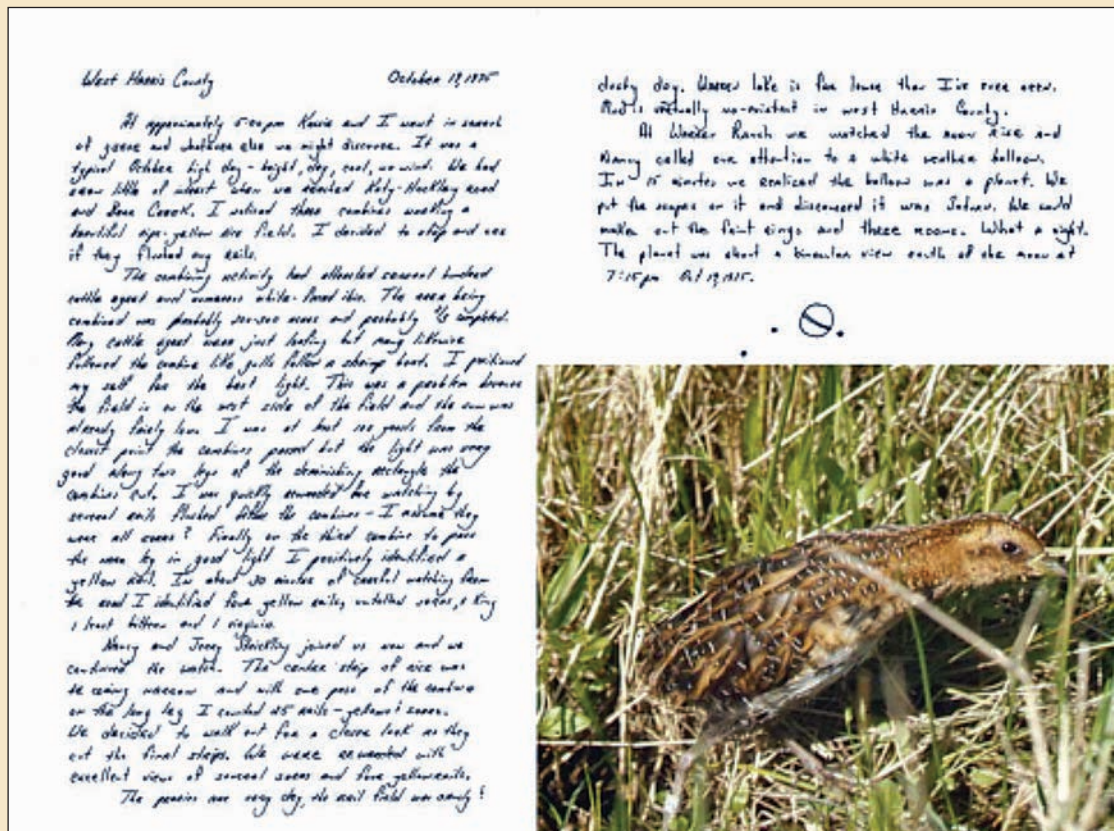 West Harris County October 19, 1975
At approximately 5:00 pm and I went in search
of geese and whatever else we might discover. It was a
typical October high day - bright, dry, cool, no wind. We had
seen little of interest when we reached Katy-Hockley road
and Bear Creek. I noticed three combines working a
beautiful ripe-yellow rice field. I decided to stop and see
if they flushed any rails.
The combining activity had attracted several hundred
cattle egret and numerous white-faced ibis. The area being
combined was probably acres and probably completed.
Many cattle egret were just loafing but many likewise
followed the combine like gulls follow a shrimp boat. I positioned
my self for the best light. This was a problem because
the field is on the west side of the field and the sun was
already fairly low. I was at best 100 yards from the
closest point the combines passed but the light was very
good along two legs of the diminishing rectangle the
combines cut. I was quickly rewarded for watching by
several rails flushed before the combines - I assume they
were all soras? Finally on the third combine to pass
the area by in good light I positively identified a
yellow rail. In about 30 minutes of careful watching from
the road I identified four yellow rails, untolled soras, 1 King
1 least bittern and 1 virginia.
Nancy and Jerry Strickling joined us now and we
continued the watch. The center strip of rice was
be coming narrow and with one pass of the combine
on the long leg I counted 25 rails - yellows & soras.
We decided to walk out for a closer look as they
cut the final strips. We were rewarded with
excellent views of several soras and four yellow rails.
The prairies are very dry, the rail field was
dusty dry. Warren lake is far lower than I've ever seen.
Mud is virtually no-existent in west Harris County.
At Ranch we watched the moon rise and
Nancy called our attention to a white weather balloon.
In 15 minutes we realized the balloon was a planet. We
put the scopes on it and discovered it was We could
make out the faint rings and three moons. What a night.
The planet was about a binocular view south of the moon at
7:15 pm Oct 19, 1975.